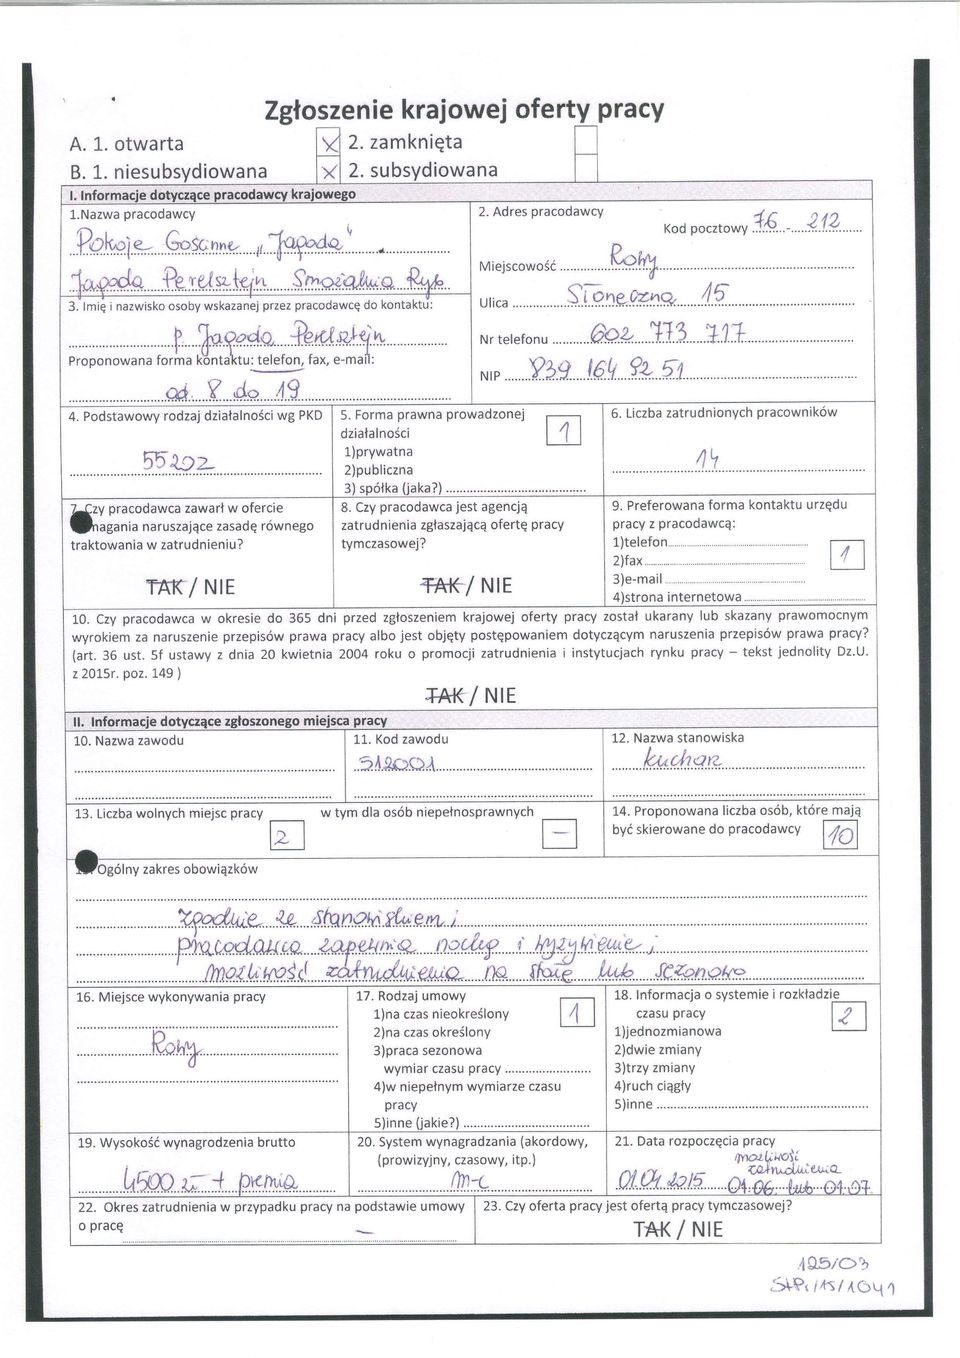 Zgłoszenie krajowej oferty pracy
A. 1. otwarta X 2. zamknięta
B. 1. niesubsydiowana X 2. subsydiowana
I. Informacje dotyczące pracodawcy krajowego
1.Nazwa pracodawcy
Pokoje Gościnne „Jagoda"
Jagoda Perelsztejn Smażalnia Ryb
2. Adres pracodawcy
Kod pocztowy 76 - 212
Miejscowość Rowy
Ulica Słoneczna 15
Nr telefonu 602 773 717
NIP 839 164 92 51
3. Imię i nazwisko osoby wskazanej przez pracodawcę do kontaktu:
p. Jagoda Perelsztejn
Proponowana forma kontaktu: telefon, fax, e-mail:
od. 8 do 19
4. Podstawowy rodzaj działalności wg PKD
5520Z
5. Forma prawna prowadzonej
działalności 1
1)prywatna
2)publiczna
3) spółka (jaka?)
6. Liczba zatrudnionych pracowników
14
7. Czy pracodawca zawarł w ofercie
wymagania naruszające zasadę równego
traktowania w zatrudnieniu?
TAK / NIE
8. Czy pracodawca jest agencją
zatrudnienia zgłaszającą ofertę pracy
tymczasowej?
TAK / NIE
9. Preferowana forma kontaktu urzędu
pracy z pracodawcą:
1)telefon
2)fax 1
3)e-mail
4)strona internetowa
10. Czy pracodawca w okresie do 365 dni przed zgłoszeniem krajowej oferty pracy został ukarany lub skazany prawomocnym
wyrokiem za naruszenie przepisów prawa pracy albo jest objęty postępowaniem dotyczącym naruszenia przepisów prawa pracy?
(art. 36 ust. 5f ustawy z dnia 20 kwietnia 2004 roku o promocji zatrudnienia i instytucjach rynku pracy – tekst jednolity Dz.U.
z 2015r. poz. 149 )
TAK / NIE
II. Informacje dotyczące zgłoszonego miejsca pracy
10. Nazwa zawodu
11. Kod zawodu
512001
12. Nazwa stanowiska
kucharz
13. Liczba wolnych miejsc pracy 2 w tym dla osób niepełnosprawnych –
14. Proponowana liczba osób, które mają
być skierowane do pracodawcy 10
15. Ogólny zakres obowiązków
zgodnie ze stanowiskiem;
pracodawca zapewnia nocleg i wyżywienie;
możliwość zatrudnienia na stałe lub sezonowo
16. Miejsce wykonywania pracy
Rowy
17. Rodzaj umowy
1)na czas nieokreślony 1
2)na czas określony
3)praca sezonowa
wymiar czasu pracy
4)w niepełnym wymiarze czasu
pracy
5)inne (jakie?)
18. Informacja o systemie i rozkładzie
czasu pracy 2
1)jednozmianowa
2)dwie zmiany
3)trzy zmiany
4)ruch ciągły
5)inne
19. Wysokość wynagrodzenia brutto
4500 zł + premia
20. System wynagradzania (akordowy,
(prowizyjny, czasowy, itp.)
m-c
21. Data rozpoczęcia pracy
możliwość
zatrudnienia
01.04.2015 01.06. lub 01.07.
22. Okres zatrudnienia w przypadku pracy na podstawie umowy
o pracę –
23. Czy oferta pracy jest ofertą pracy tymczasowej?
TAK / NIE
125/03
StPr/15/1041